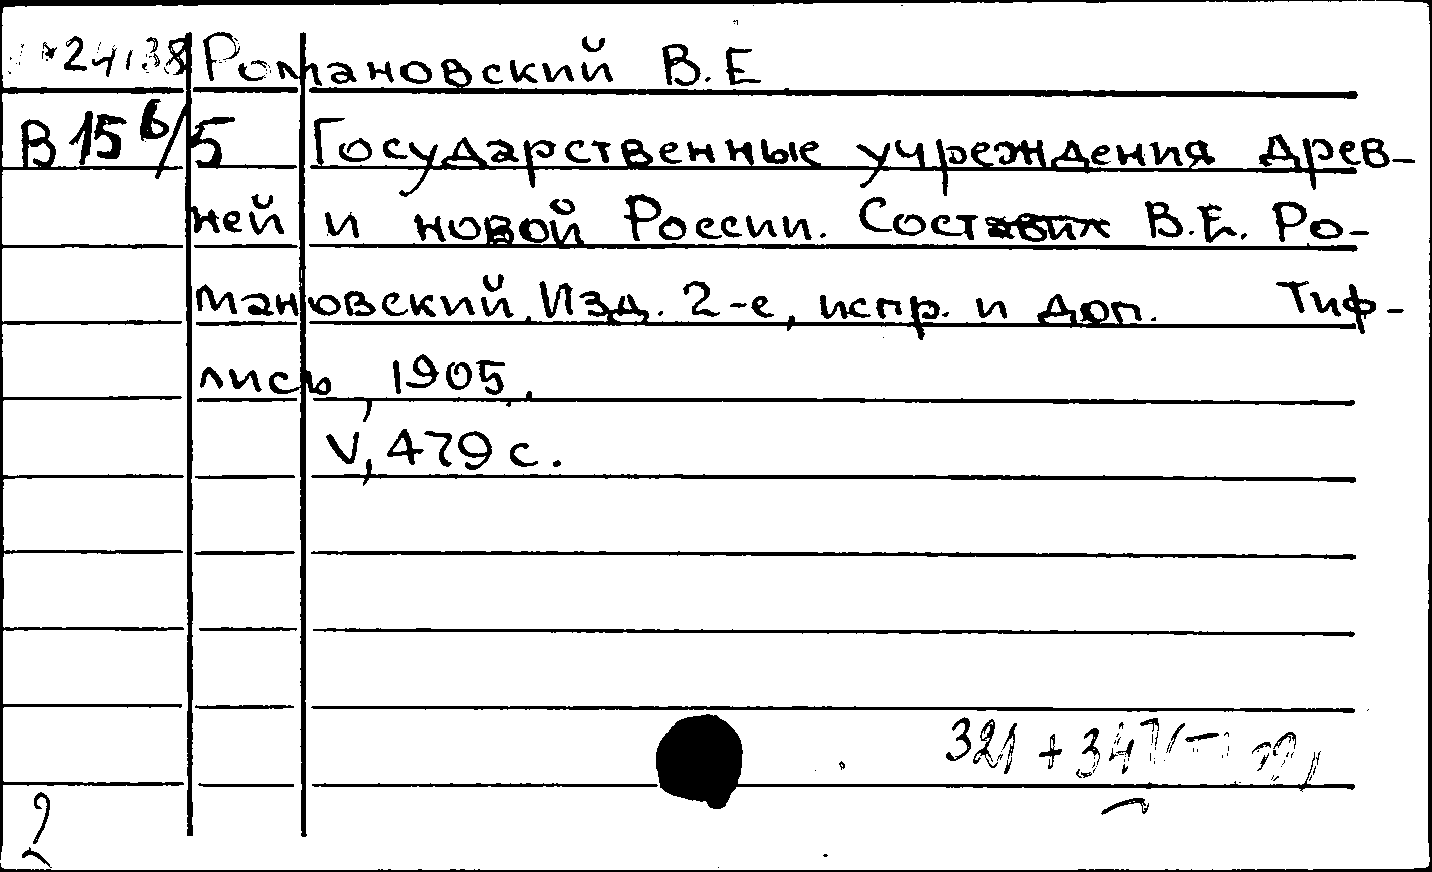 24138 Романовский В.Е
В 15 6/5 Государственные учреждения древ-
ней и новой России. Составил В.Е. Ро-
мановский. Изд. 2-е, испр. и доп. Тиф-
лисъ, 1905.
V, 479 с.
321 + 347
2